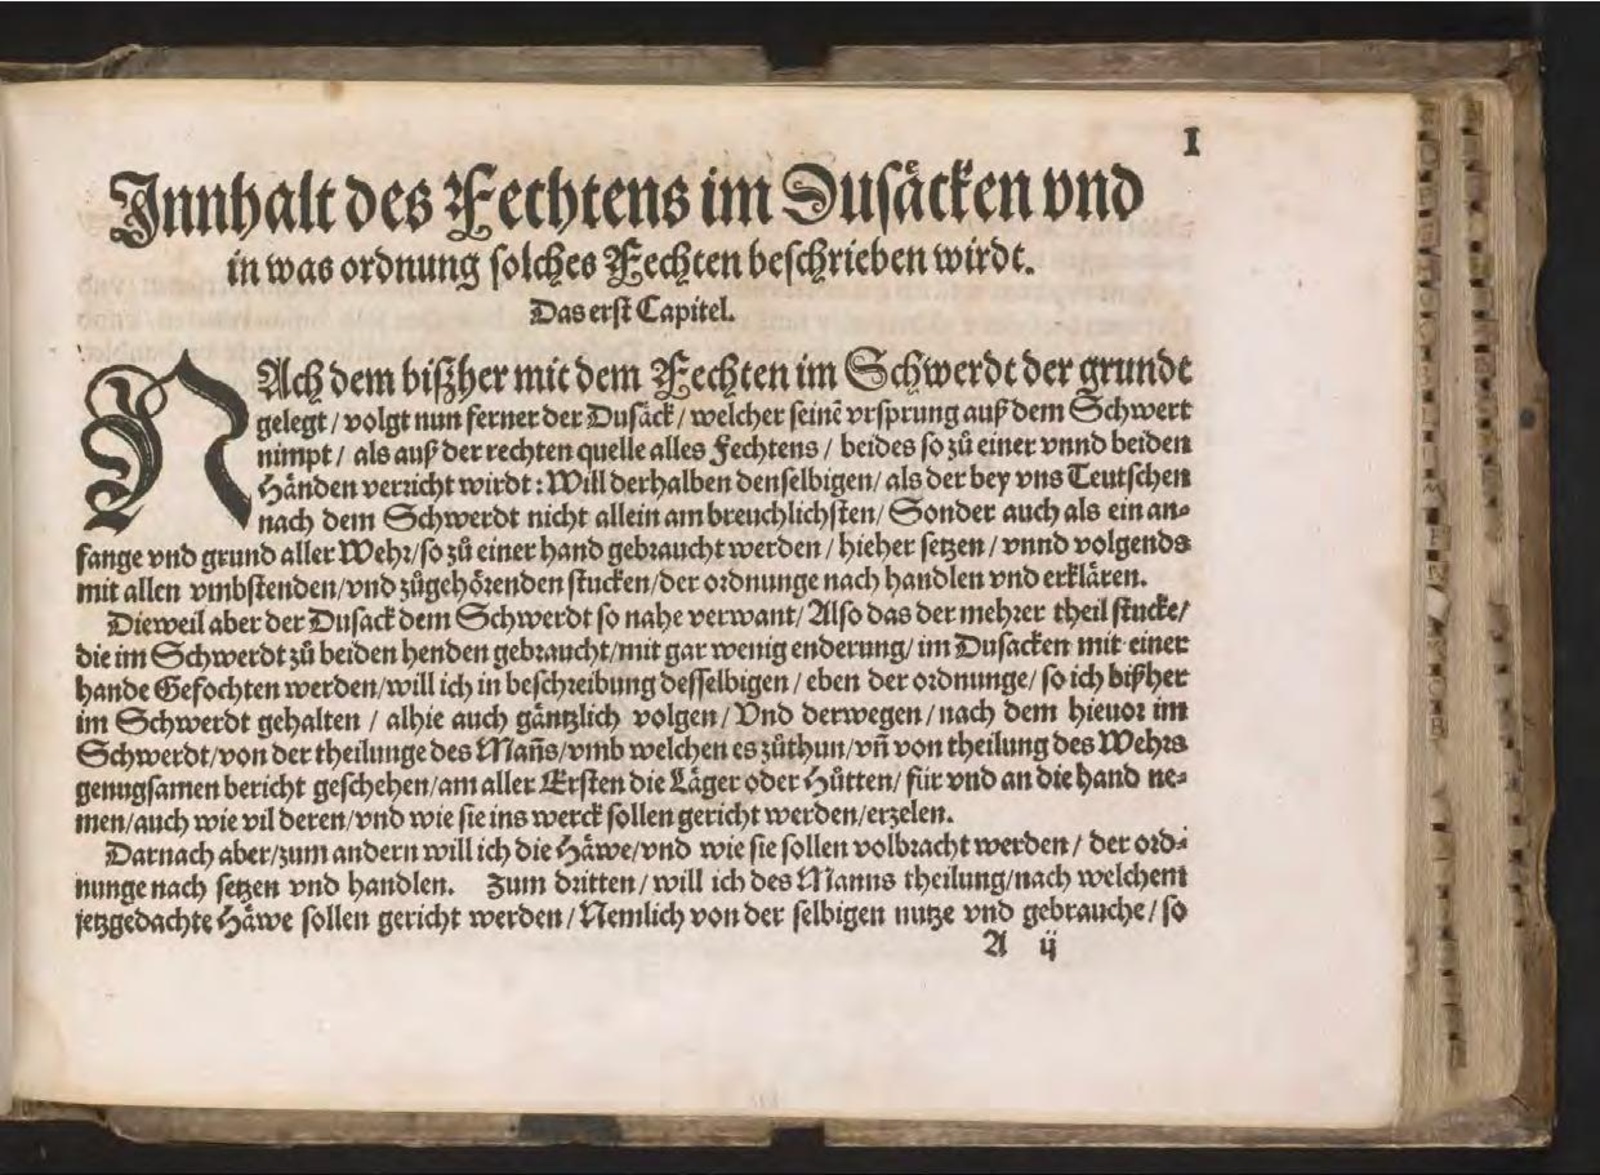 I
Innhalt des Fechtens im Dusäcken vnd
in was ordnung solches Fechten beschrieben wirdt.
Das erst Capitel.
NAch dem bißher mit dem Fechten im Schwerdt der grundt
gelegt / volgt nun ferner der Dusäck / welcher seinē vrsprung auß dem Schwert
nimpt / als auß der rechten quelle alles Fechtens / beides so zů einer vnnd beiden
Händen verricht wirdt: Will derhalben denselbigen / als der bey vns Teutschen
nach dem Schwerdt nicht allein am breuchlichsten / Sonder auch als ein an-
fange vnd grund aller Wehr / so zů einer hand gebraucht werden / hieher setzen / vnnd volgends
mit allen vmbstenden / vnd zůgehörenden stucken / der ordnunge nach handlen vnd erklären.
Dieweil aber der Dusack dem Schwerdt so nahe verwant / Also das der mehrer theil stucke /
die im Schwerdt zů beiden henden gebraucht / mit gar wenig enderung / im Dusacken mit einer
hande Gefochten werden / will ich in beschreibung desselbigen / eben der ordnunge / so ich bißher
im Schwerdt gehalten / alhie auch gäntzlich volgen / Vnd derwegen / nach dem hieuor im
Schwerdt / von der theilunge des Mañs / vmb welchen es zůthun / vñ von theilung des Wehrs
genugsamen bericht geschehen / am aller Ersten die Läger oder Hůtten / für vnd an die hand ne-
men / auch wie vil deren / vnd wie sie ins werck sollen gericht werden / erzelen.
Darnach aber / zum andern will ich die Häwe / vnd wie sie sollen volbracht werden / der ord-
nunge nach setzen vnd handlen. Zum dritten / will ich des Manns theilung / nach welchem
jetzgedachte Häwe sollen gericht werden / Nemlich von der selbigen nutze vnd gebrauche / so
A ij